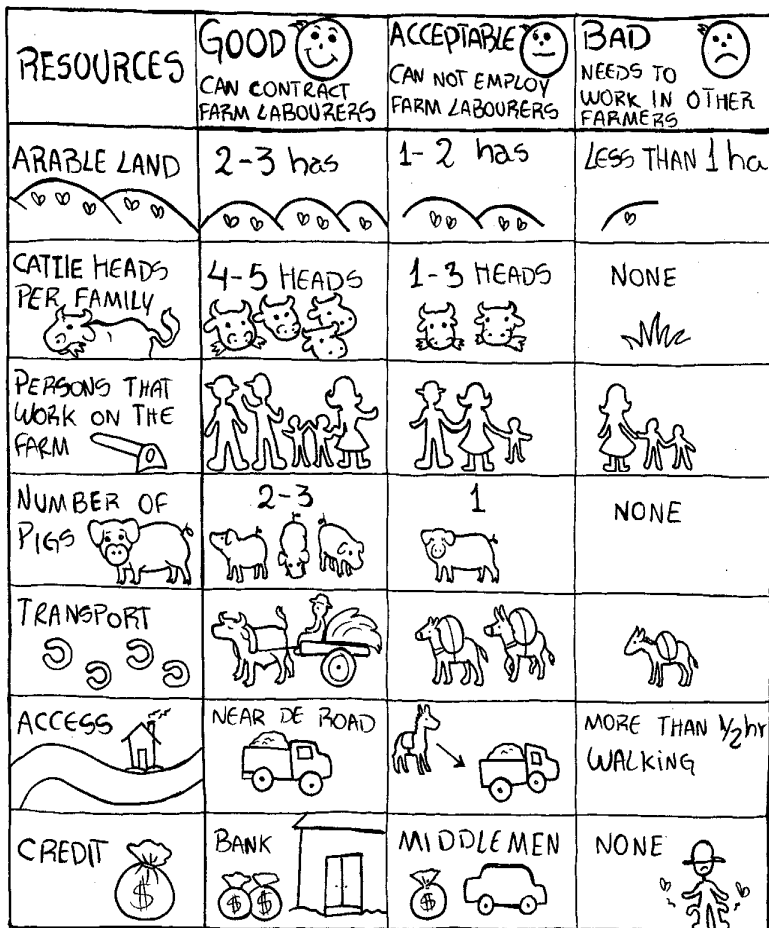 RESOURCES
GOOD
CAN CONTRACT
FARM LABOURERS
ACCEPTABLE
CAN NOT EMPLOY
FARM LABOURERS
BAD
NEEDS TO
WORK IN OTHER
FARMERS
ARABLE LAND
2-3 has
1-2 has
LESS THAN 1 ha
CATTLE HEADS
PER FAMILY
4-5 HEADS
1-3 HEADS
NONE
PERSONS THAT
WORK ON THE
FARM
NUMBER OF
PIGS
2-3
1
NONE
TRANSPORT
ACCESS
NEAR DE ROAD
MORE THAN 1/2 hr
WALKING
CREDIT
$
BANK
$ $
MIDDLEMEN
$
NONE